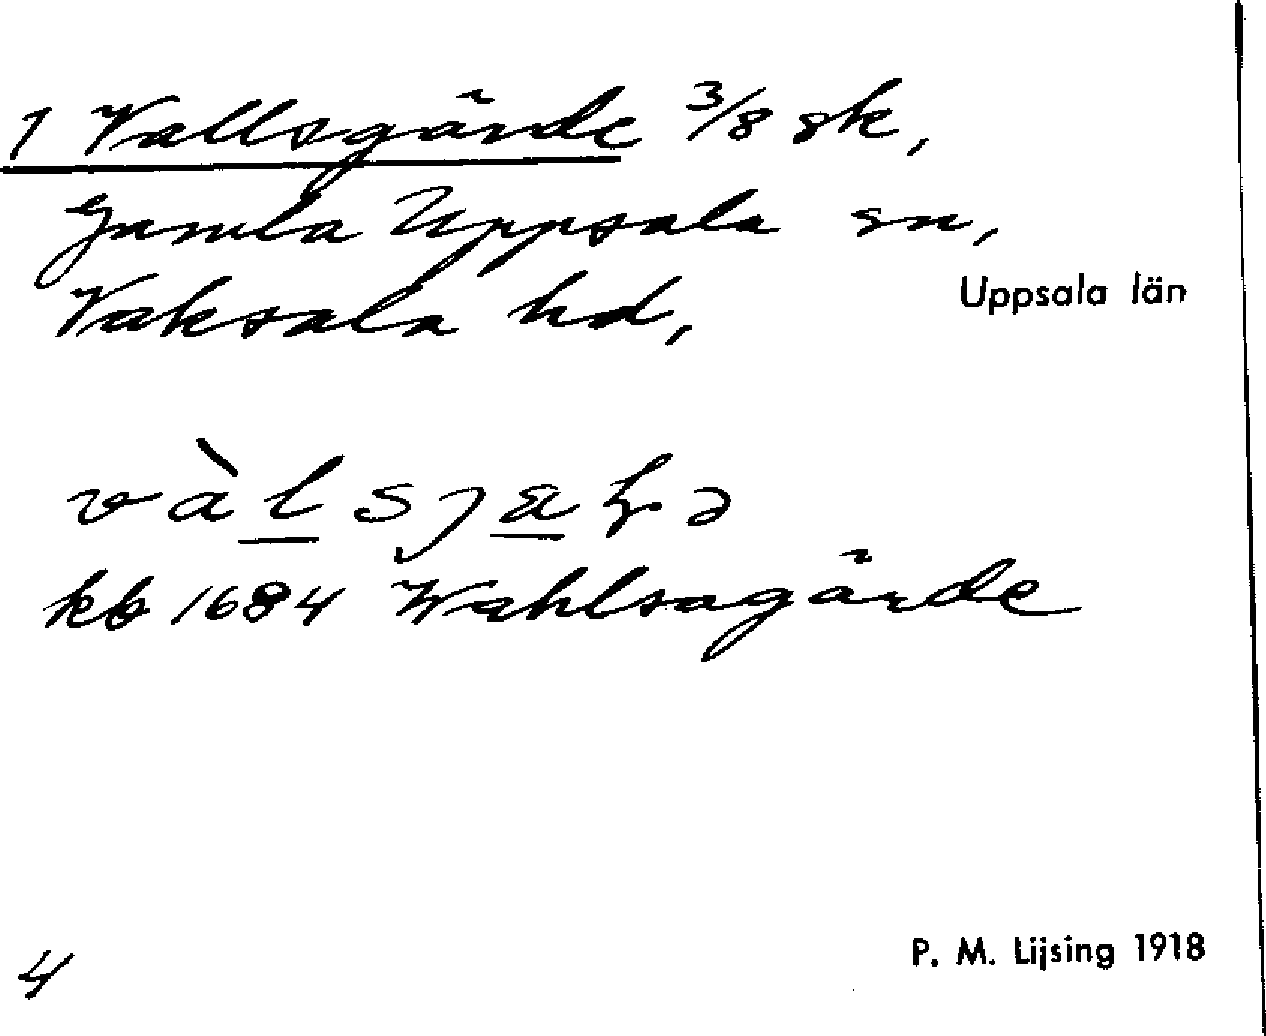 1 Vallsgärde 3/8 sk,
Gamla Uppsala sn,
Vaksala hd,
Uppsala län
kb 1684 Wahlsagärde
4
P. M. Lijsing 1918